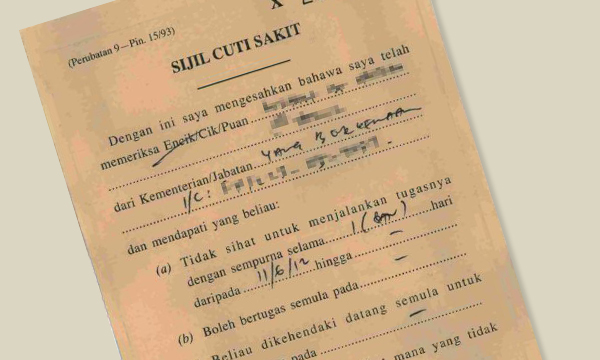 (Perubatan 9—Pin. 15/93)
SIJIL CUTI SAKIT
Dengan ini saya mengesahkan bahawa saya telah
memeriksa Encik/Cik/Puan
dari Kementerian/Jabatan YANG BERKENAAN
I/C:
dan mendapati yang beliau:
(a) Tidak sihat untuk menjalankan tugasnya
dengan sempurna selama 1 ( ) hari
daripada 11/6/12 hingga —
(b) Boleh bertugas semula pada —
Beliau dikehendaki datang semula untuk
pada —
mana yang tidak